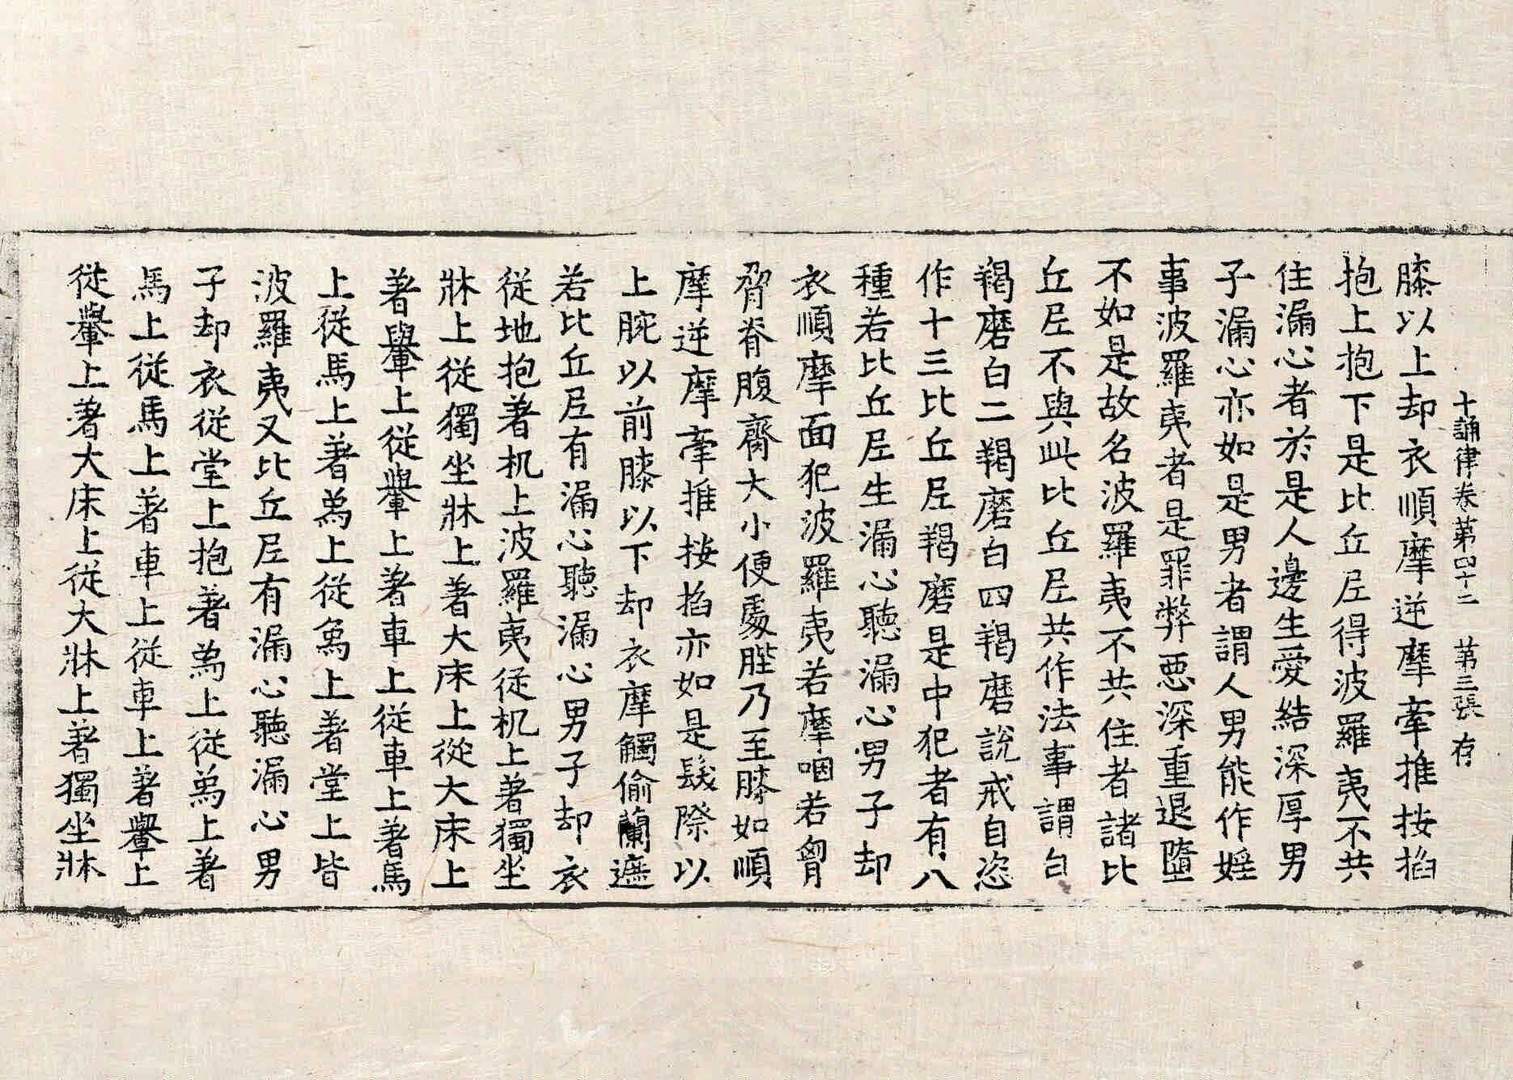 十誦律卷第四十二 第三張 存
膝以上却衣順摩逆摩牽推按掐
抱上抱下是比丘尼得波羅夷不共
住漏心者於是人邊生愛結深厚男
子漏心亦如是男者謂人男能作婬
事波羅夷者是罪弊惡深重退墮
不如是故名波羅夷不共住者諸比
丘尼不與此比丘尼共作法事謂白
羯磨白二羯磨白四羯磨說戒自恣
作十三比丘尼羯磨是中犯者有八
種若比丘尼生漏心聽漏心男子却
衣順摩面犯波羅夷若摩咽若胷
脅脊腹齊大小便處髀乃至膝如順
摩逆摩牽推按掐亦如是髮際以
上腕以前膝以下却衣摩觸偷蘭遮
若比丘尼有漏心聽漏心男子却衣
從地抱著机上波羅夷從机上著獨坐
牀上從獨坐牀上著大床上從大床上
著轝上從轝上著車上從車上著馬
上從馬上著爲上從爲上著堂上皆
波羅夷又比丘尼有漏心聽漏心男
子却衣從堂上抱著爲上從爲上著
馬上從馬上著車上從車上著轝上
從轝上著大床上從大牀上著獨坐牀